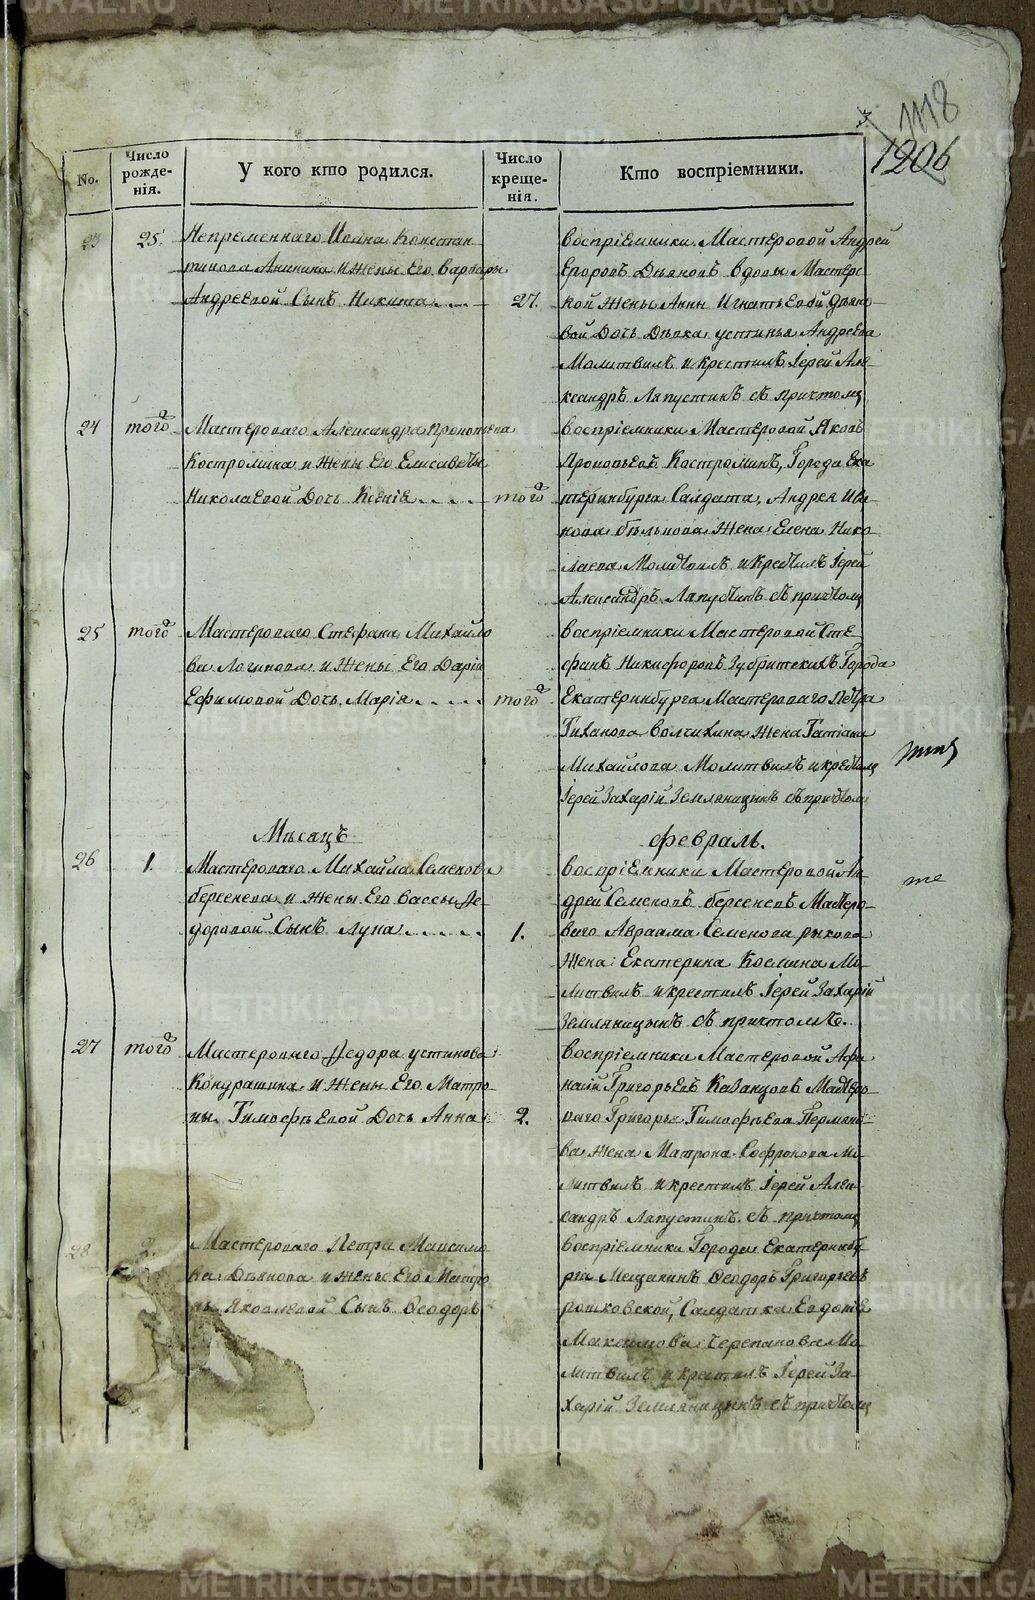 1118
1206
No.
Число рожде-нія.
У кого кто родился.
Число креще-нія.
Кто воспріемники.
23
25.
Непременнаго Иоанна Констан
тинова Аникина и Жены Его Варвары
Андреевой Сынъ Никита
27.
воспріемники Мастеровой Андрей
Егоровъ Дьяновъ вдовы Мастерс-
кой Жены Анны Игнатьевой Дьяно-
вой Дочь Девка устинья Андреева
Молитвилъ и крестилъ Іерей Але-
ксандръ Ляпустинъ съ причтомъ
24
того
Мастероваго Александра Прокопьева
Костромина и Жены Его Елисаветы
Николаевой Дочь Ксенія
того
воспріемники Мастеровой Яковъ
Прокопьевъ Костроминъ, Города Ека
теринбурга Салдата, Андрея Ива-
нова бельнова Жена Елена Нико-
лаева Молитвилъ и крестилъ Іерей
Александръ Ляпустинъ съ причтомъ
25
того
Мастероваго Стефана Михайло
ва Логинова и Жены Его Даріи
Ефимовой Дочь Марія
того
воспріемники Мастеровой Сте
фанъ Никифоровъ Зубритскихъ Города
Екатеринбурга Мастероваго Петра
Тиханова Волчихина Жена Татіана
Михайлова Молитвилъ и крестилъ
Іерей Захарій Земляницынъ съ причтомъ
Месяцъ
февраль.
26
1.
Мастероваго Михайла Семенова
берсенева и Жены Его Вассы Фе-
доровой Сынъ Лука
1.
воспріемники Мастеровой Ан
дрей Семеновъ берсеневъ Мастеро-
ваго Авраама Семенова рыкова
Жена Екатерина Космина Мо-
литвилъ и крестилъ Іерей Захарій
Земляницынъ съ причтомъ.
27
того
Мастероваго Федора устинова
Кондрашина и Жены Его Матро-
ны Тимофеевой Дочь Анна
2.
воспріемники Мастеровой Афа
насій Григорьевъ Казанцовъ Мастеро-
ваго Григорья Тимофеева Пермяко-
ва Жена Матрона Софронова Мо-
литвилъ и крестилъ Іерей Алек-
сандръ Ляпустинъ съ причтомъ
28
2.
Мастероваго Петра Максимо
ва Дьянова и Жены Его Матро
ны Яковлевой Сынъ Феодоръ
воспріемники Города Екатеринбу
рга Мещанинъ Феодоръ Григорьевъ
рошковской, Салдатка Евдокія
Максимова Черепанова Мо
литвилъ и крестилъ Іерей За
харій Земляницынъ съ причтомъ
METRIKI.GASO-URAL.RU